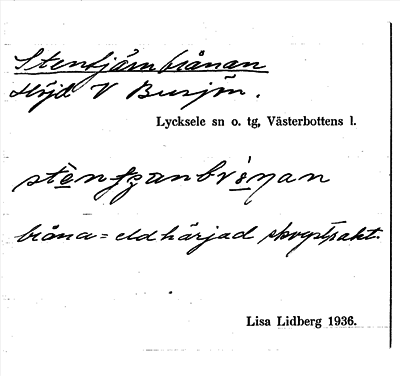 Stenfjärnbrånan
Höjd V Busjön.
Lycksele sn o. tg, Västerbottens l.
bråna = eldhärjad skogstrakt.
Lisa Lidberg 1936.